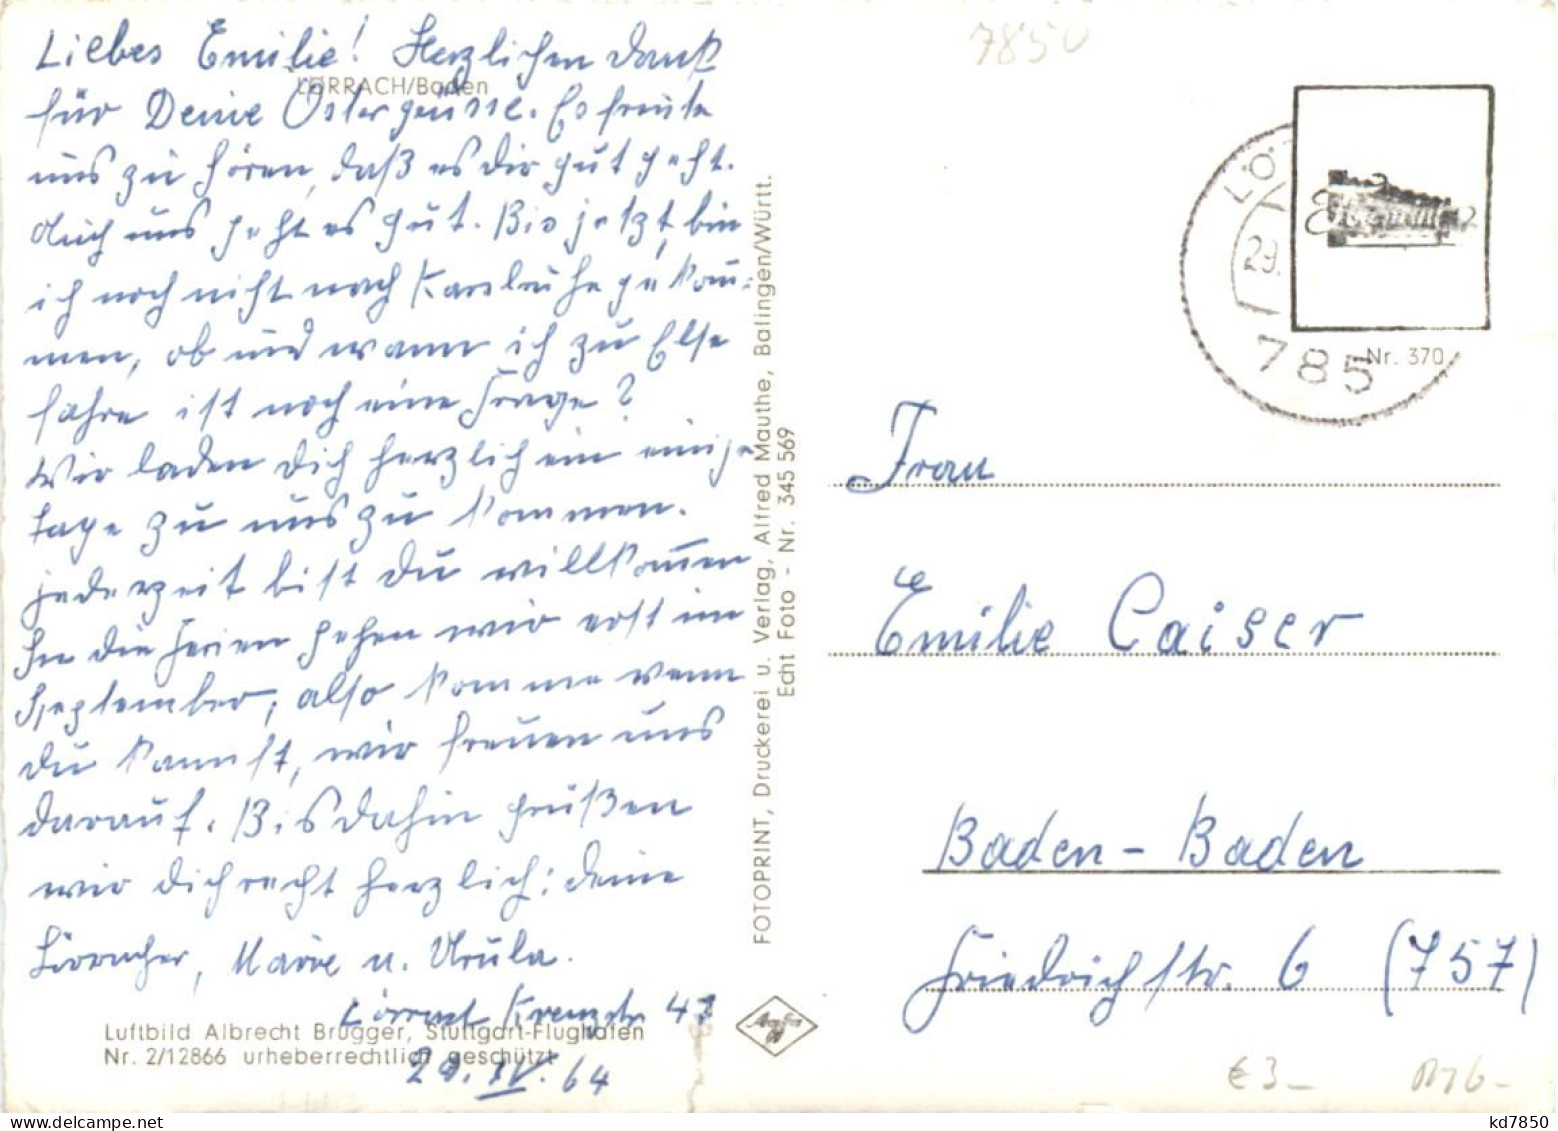 7850
Liebes Emilie! Herzlichen Dank
LÖRRACH/Baden
für Deine Ostergrüsse. Es freute
uns zu hören, daß es Dir gut geht.
Auch uns geht es gut. Bis jetzt bin
ich noch nicht nach Karlsruhe gekom-
men, ob und wann ich zu Else
fahre ist noch eine Frage?
Wir laden Dich herzlich ein einige
Tage zu uns zu kommen.
jederzeit bist Du willkom̅en
In die Ferien gehen wir erst im
September, also komme wenn
Du kannst, wir freuen uns
darauf. Bis dahin grüßen
wir Dich recht herzlich: Deine
Lörracher, Marie u. Ursula.
Lörrach Kreuzstr 41
29. IV. 64
Luftbild Albrecht Brugger, Stuttgart-Flughafen
Nr. 2/12866 urheberrechtlich geschützt
FOTOPRINT, Druckerei u. Verlag, Alfred Mauthe, Balingen/Württ.
Echt Foto - Nr. 345 569
Agfa
LÖ
29.
785
Nr. 370
Frau
Emilie Caiser
Baden-Baden
Friedrichstr. 6 (757)
€ 3-
kd7850